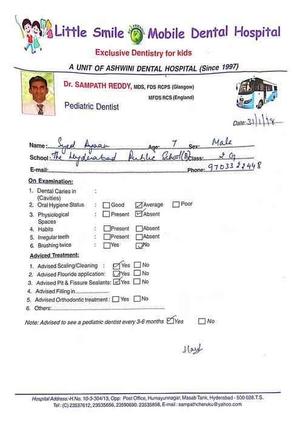 Little Smile Mobile Dental Hospital
Exclusive Dentistry for kids
A UNIT OF ASHWINI DENTAL HOSPITAL (Since 1997)
Dr. SAMPATH REDDY, MDS, FDS RCPS (Glasgow)
MFDS RCS (England)
Pediatric Dentist
Date: 31/1/
Name: Syed Age: 7 Sex: Male
School: The Hyderabad Public School Class: 2 G
E-mail: Phone: 9703322448
On Examination:
1. Dental Caries in :
(Cavities)
2. Oral Hygiene Status : Good Average Poor
3. Physiological : Present Absent
Spaces
4. Habits : Present Absent
5. Irregular teeth : Present Absent
6. Brushing twice : Yes No
Adviced Treatment:
1. Advised Scaling/Cleaning : Yes No
2. Advised Flouride application: Yes No
3. Advised Pit & Fissure Sealants: Yes No
4. Advised Filling in
5. Advised Orthodontic treatment : Yes No
6. Others:
Note: Advised to see a pediatric dentist every 3-6 months Yes No
Hospital Address:-H.No. 10-3-304/13, Opp: Post Office, Humayunnagar, Masab Tank, Hyderabad - 500 028.T.S.
Tel: (C) 23537612, 23535656, 23590690, 23535858, E-mail: sampathcheruku@yahoo.com